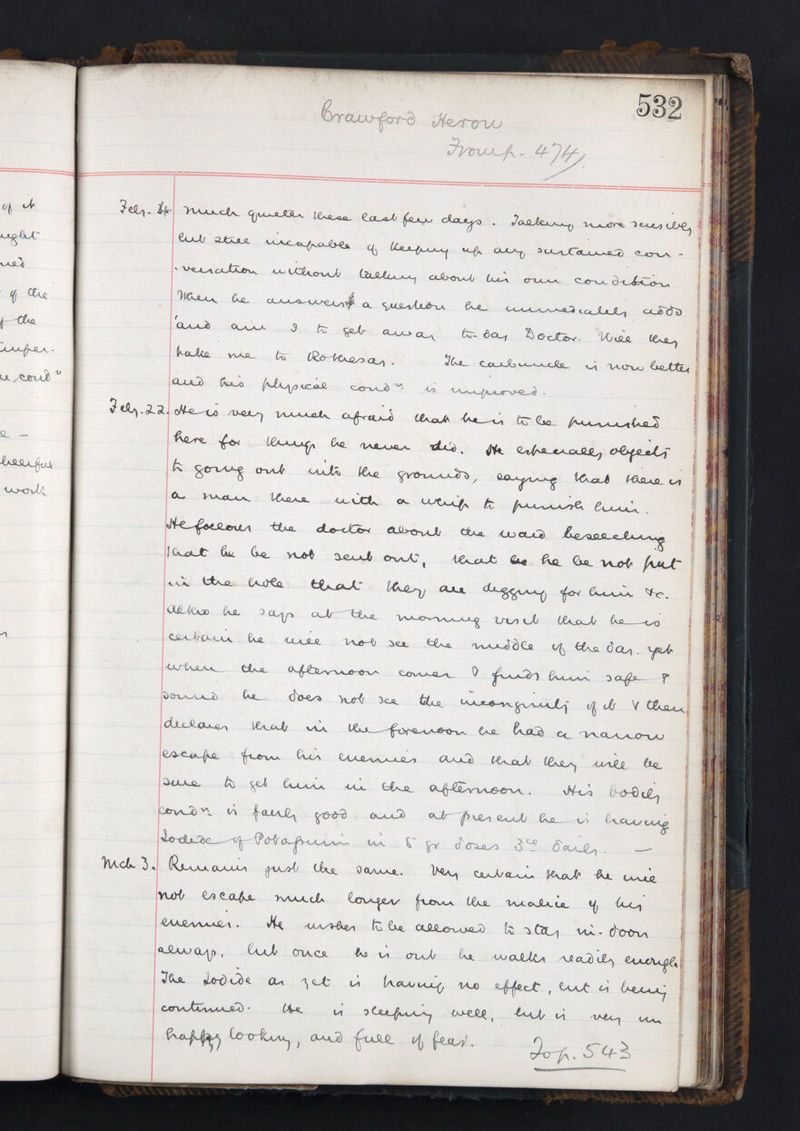 532
Crawford Heron
From p. 474
of it
ught
ned
of the
f the
emper-
cond"
e -
work
Feby. much quieter these last few days. Talking more sensibly
but still incapable of keeping up any sustained con-
-versation without talking about his own condition
When he answers a question he immediately adds
'and am I to get away to-day Doctor. Will they
take me to Rothesay. The carbuncle is now better
and his physical condn is improved.
Feby. 22. He is very much afraid that he is to be punished
here for things he never did. He especially objects
to going out into the grounds, saying that there is
a man there with a whip to punish him.
He follows the doctor about the ward beseeching
that he be not sent out, that he be not put
in the hole that they are digging for him &c.
altho he says at the morning visit that he is
certain he will not see the middle of the day. yet
when the afternoon comes & finds him safe &
sound he does not see the incongruity of it & then
declares that in the forenoon he had a narrow
escape from his enemies and that they will be
sure to get him in the afternoon. His bodily
condn is fairly good and at present he is having
Iodide of Potassium in 5 gr doses 3ce daily. —
Mch 3. Remains just the same. Very certain that he will
not escape much longer from the malice of his
enemies. He wishes to be allowed to stay in-doors
always, but once he is out he walks readily enough.
The Iodide as yet is having no effect, but is being
continued. He is sleeping well, but is very un
happy looking, and full of fear.
To p. 543